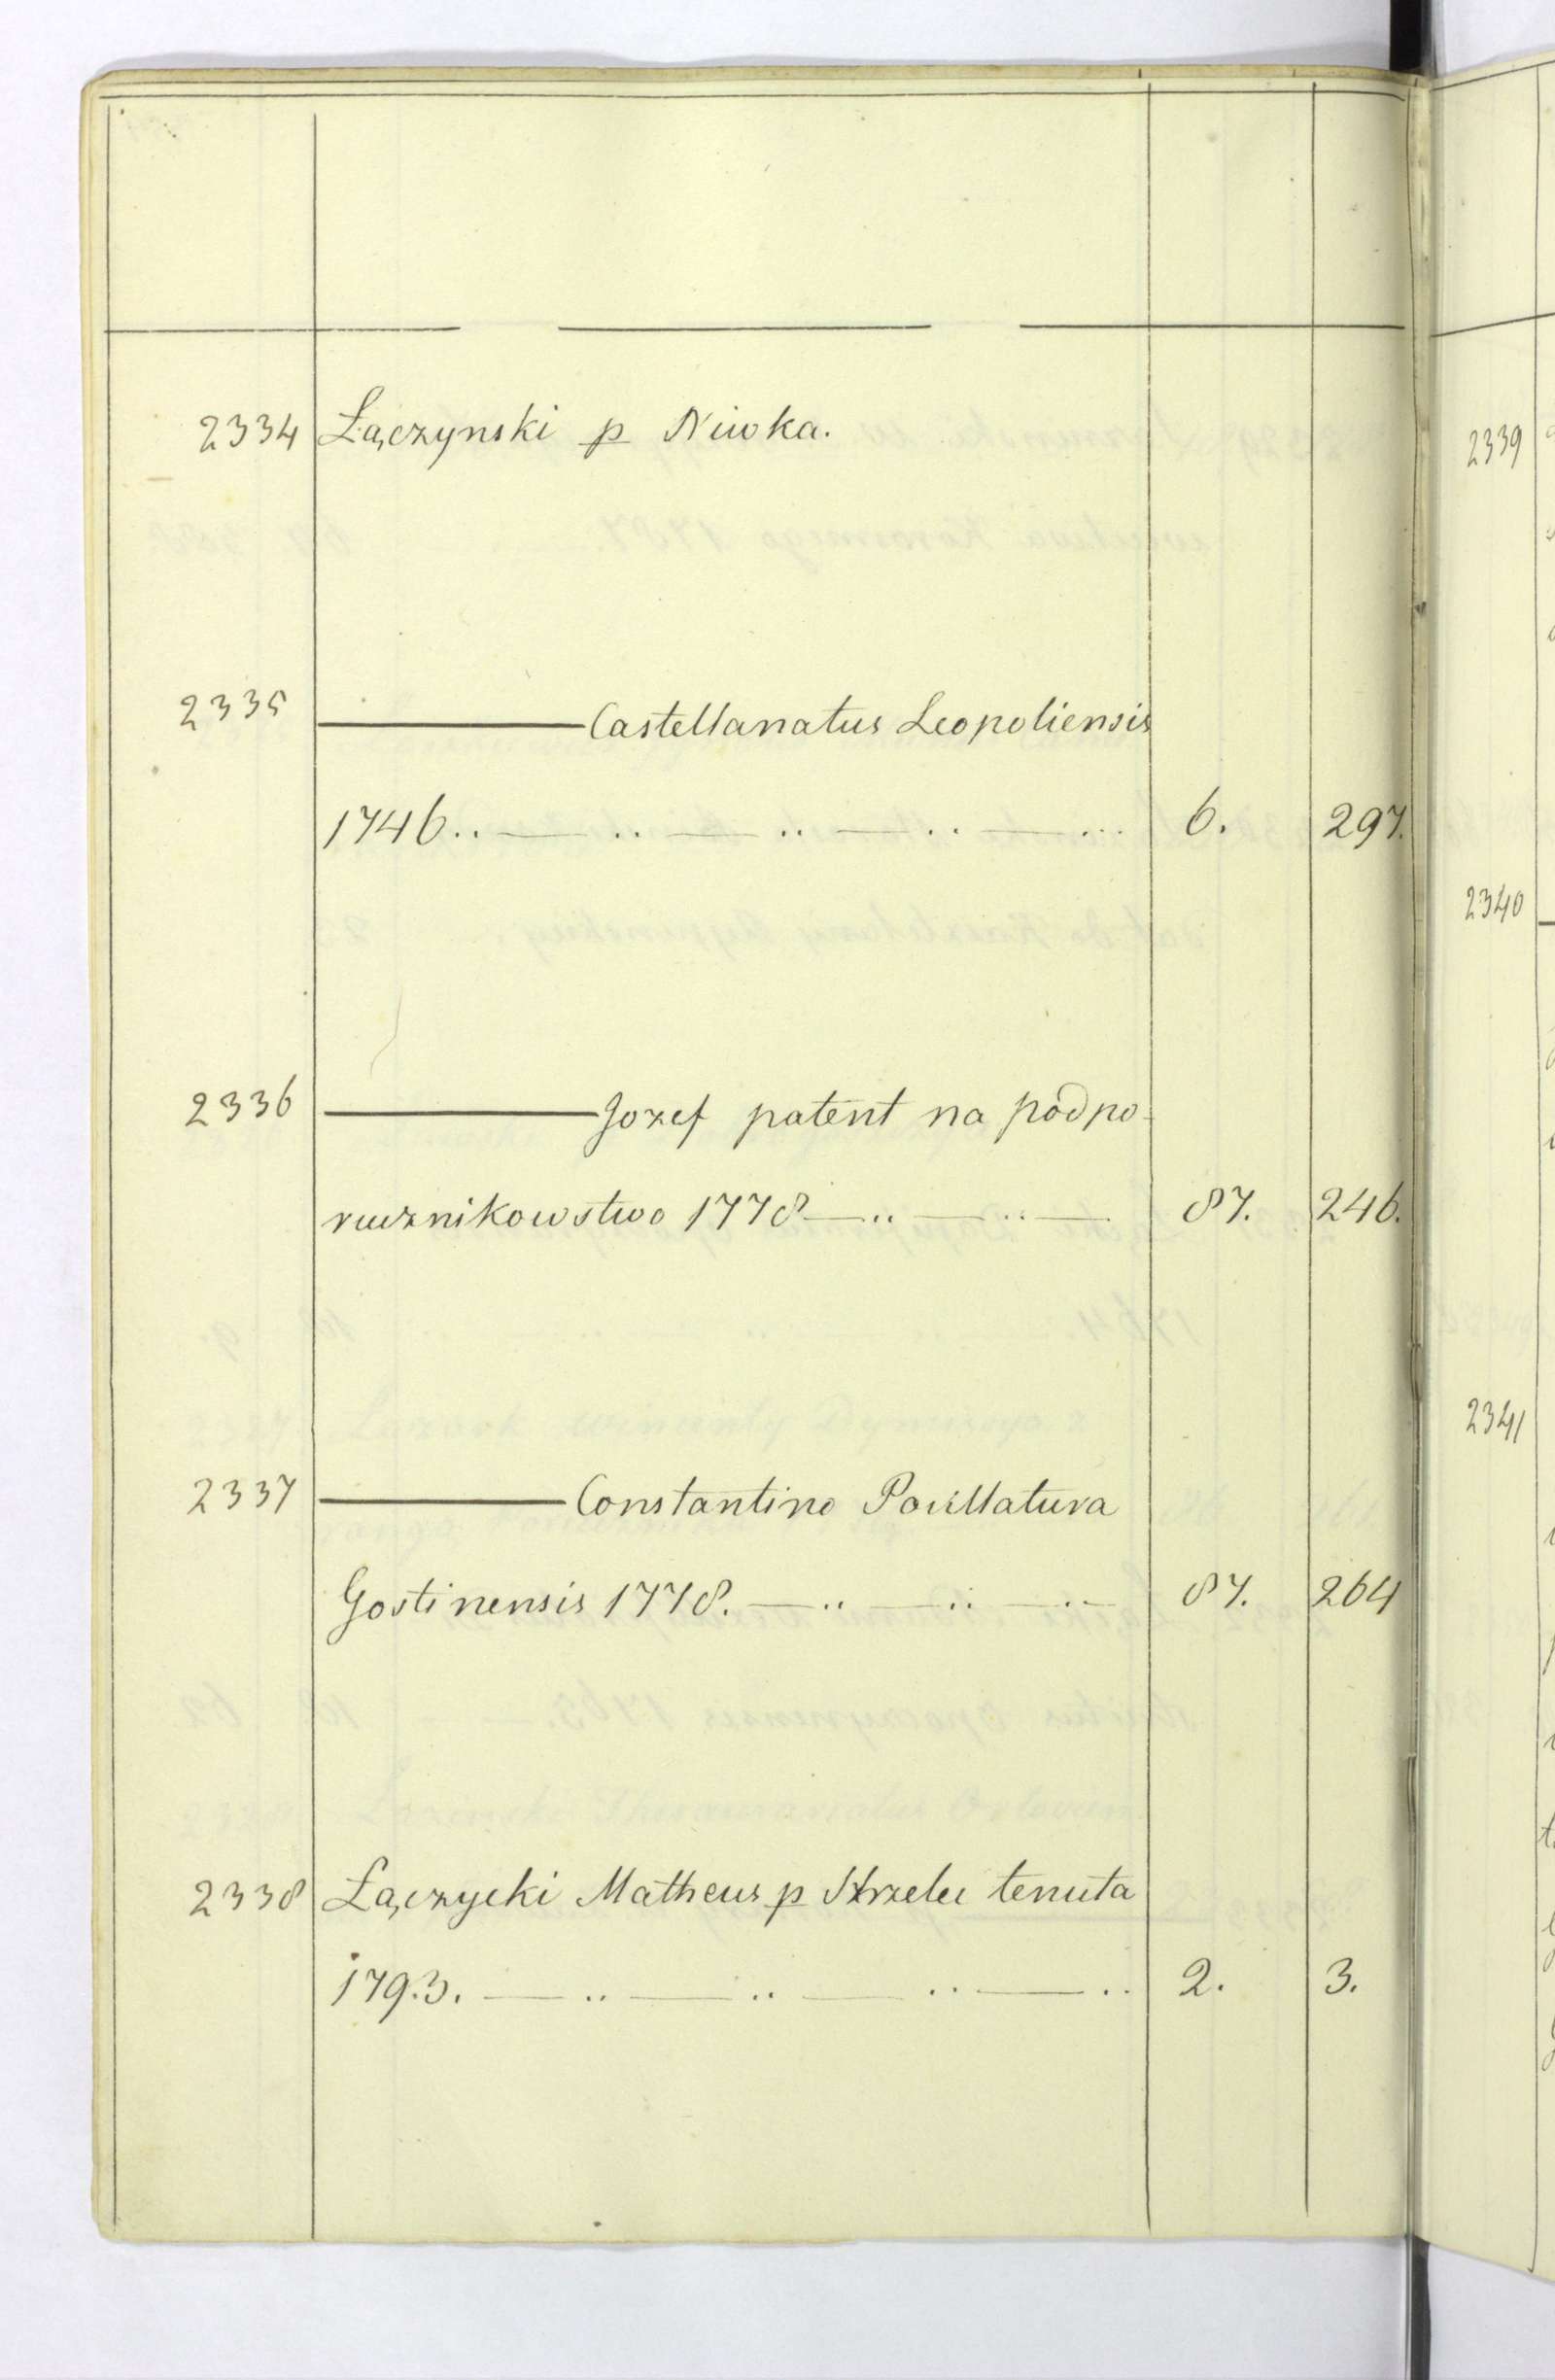 2334 Łączynski p Niwka.
2335 ——— Castellanatus Leopoliensis
1746.. — .. — .. — .. — ... 6. 297.
2336 ——— Jozef patent na podpo-
rucznikowstwo 1778 — .. — .. — 87. 246.
2337 ——— Constantino Pocillatura
Gostinensis 1778. — .. — .. — .. — 87. 264
2338 Łączycki Matheus p Strzelce tenuta
1793. — .. — .. — .. — .. 2. 3.
2339
2340
2341